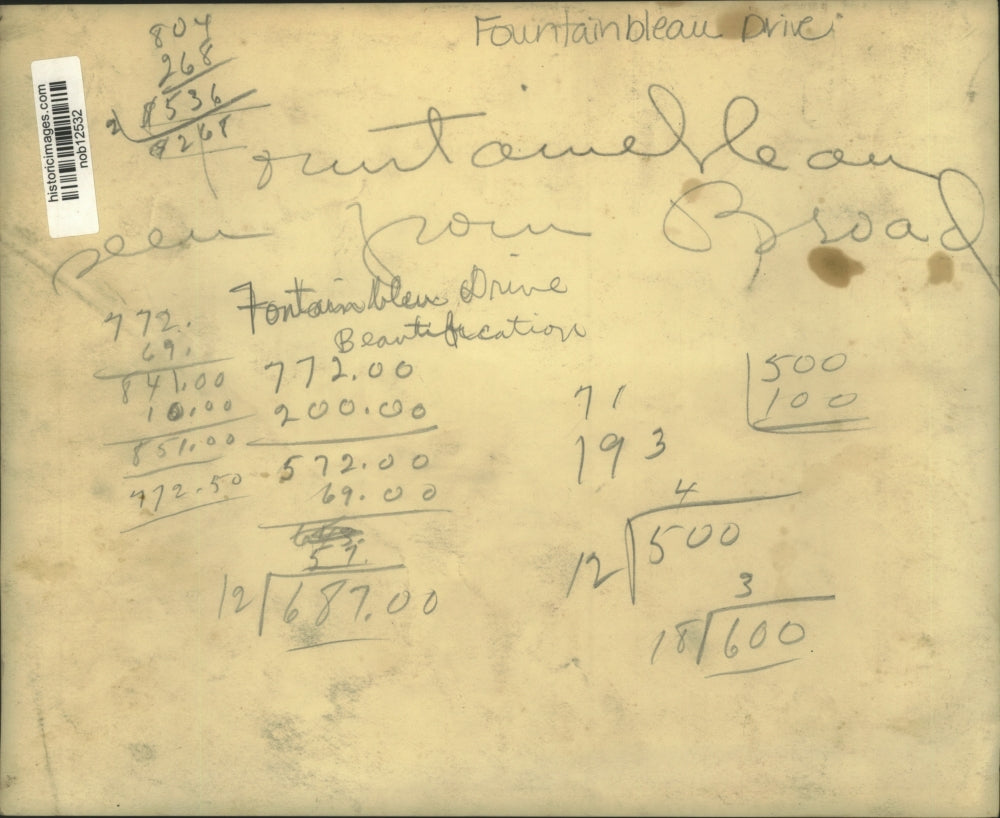 Fountainbleau Drive
804
268
1536
268
historicimages.com
nob12532
Fountainebleau
seen from Broad
Fontainbleu Drive
Beautification
772.
69.
841.00
10.00
851.00
772.50
772.00
200.00
572.00
69.00
57.
12 687.00
71
193
500
100
4
12 500
3
18 600